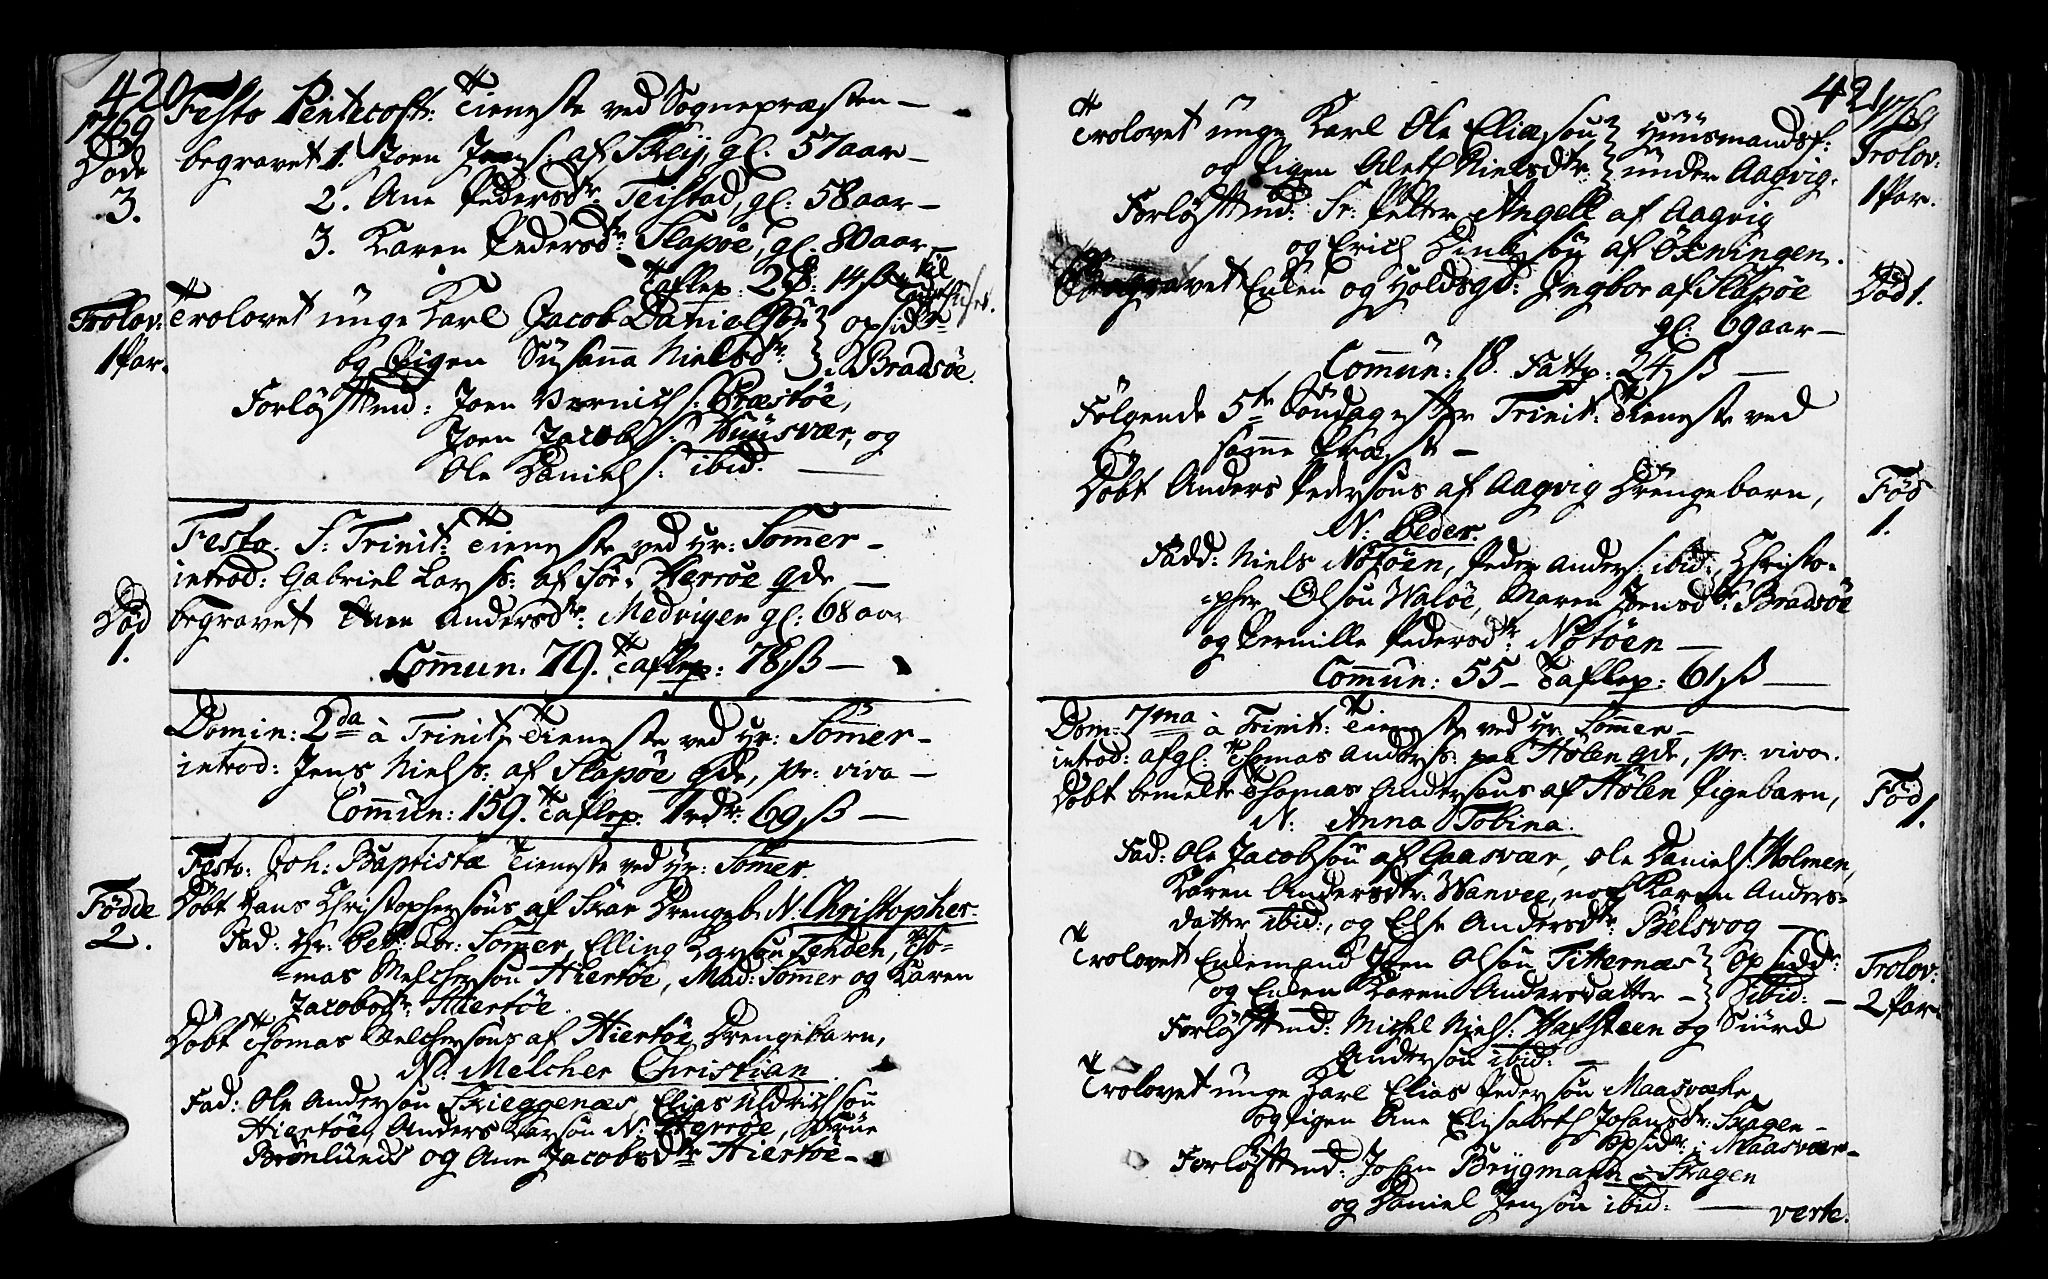 420
1769
Festo Pentecost: Tieneste ved Sognepræsten –
Døde
3.
begravet 1. Joen Joens: af Skey, gl. 57 aar –
2. Ane Pedersdr: Teistad, gl: 58 aar –
3. Karen Pedersdr: Slapøe, gl. 80 aar –
Taflep: 2 14 ß
Trolov:
1 Par.
Trolovet unge Karl Jacob Danielsøn } opsidr
og Pigen Susanna Nielsdr: } i Bradsøe.
Forløftmd: Joen Bernich: Præstøe,
Joen Jacobs: Huusvær, og
Ole Daniels: ibid. –
Festo S: Trinit: Tieneste ved Hr: Sommer –
introd: Gabriel Lars: af Sør: Herrøe qde –
Død
1.
begravet Ane Andersdr: Medvigen gl: 68 aar
Commun: 79. Taflep: 78 ß –
Domin: 2da à Trinit: Tieneste ved Hr: Sommer –
introd: Jens Niels: af Slapøe qde, pr: viva –
Commun: 159. Taflep: 1 rdr: 69 ß –
Festo: Joh: Baptistæ Tieneste ved Hr: Sommer.
Fødde
2.
Døbt Hans Christophersøns af Skar Drengeb: N: Christopher.
Fad: Hr: Sommer, Elling Larsøn Tenden, Tho-
=mas Melchersøn Hiertøe, Mad: Sommer og Karen
Jacobsdr: Hiertøe.
Døbt Thomas Melchersøns af Hiertøe Drengebarn,
N: Melcher Christian.
Fad: Ole Andersøn Skieggenæs, Elias Uldrichsøn
Hiertøe, Anders Larsøn N: Herrøe, Frue
Brønlunds og Ane Jacobsdr Hiertøe –
421
1769
Trolov:
1 Par.
Trolovet unge Karl Ole Eliæsøn } Huusmandsf:
og Pigen Aleth Nielsdr: } under Aagvig.
Forløftmd: Sr: Petter Angell af Aagvig
og Erich af Øxningen.
Død 1.
Begravet Enken og Holdsgd: Ingbor af Slapøe
gl: 69 aar –
Commun: 18. Fattp: 24 ß –
Følgende 5te Søndag efter Trinit: Tieneste ved
samme Præst –
Fød
1.
Døbt Anders Pedersøns af Aagvig Drengebarn,
N: Peder.
Fadd: Niels Nøtøen, Peder Anders: ibid:, Christo-
=pher Olsøn Waløe, Maren Joensdr: Bradsøe
og Pernille Pedersdr: Nøtøen –
Commun: 55 – Taflep: 61 ß –
Dom: 7ma à Trinit: Tieneste ved Hr Sommer –
introd: afgl: Thomas Anders: paa Hølen qde, pr: viva.
Fød
1.
Døbt bemelte Thomas Andersøns af Hølen Pigebarn,
N: Anna Tobina.
Fad: Ole Jacobsøn af Gaasvær, Ole Daniels: Holmen,
Karen Andersdr: Wanvee, noch Karen Anders=
datter ibid:, og Else Andersdr: Bølsvog –
Trolov:
2 Par.
Trolovet Enkemand Joen Olsøn Titternæs } Opsiddr:
og Enken Karen Andersdatter – } ibid: –
Forløftmd: Michel Niels: Hafsteen og Siurd
Andersøn ibid: –
Trolovet unge Karl Elias Pedersøn Maasvær
og Pigen Ane Elisabeth Johansdr: Skagen –
opsidr: i Maasvær –
Forløftmd: Johan Brygmann i Skagen
og Daniel Jensøn ibid: –
verte.